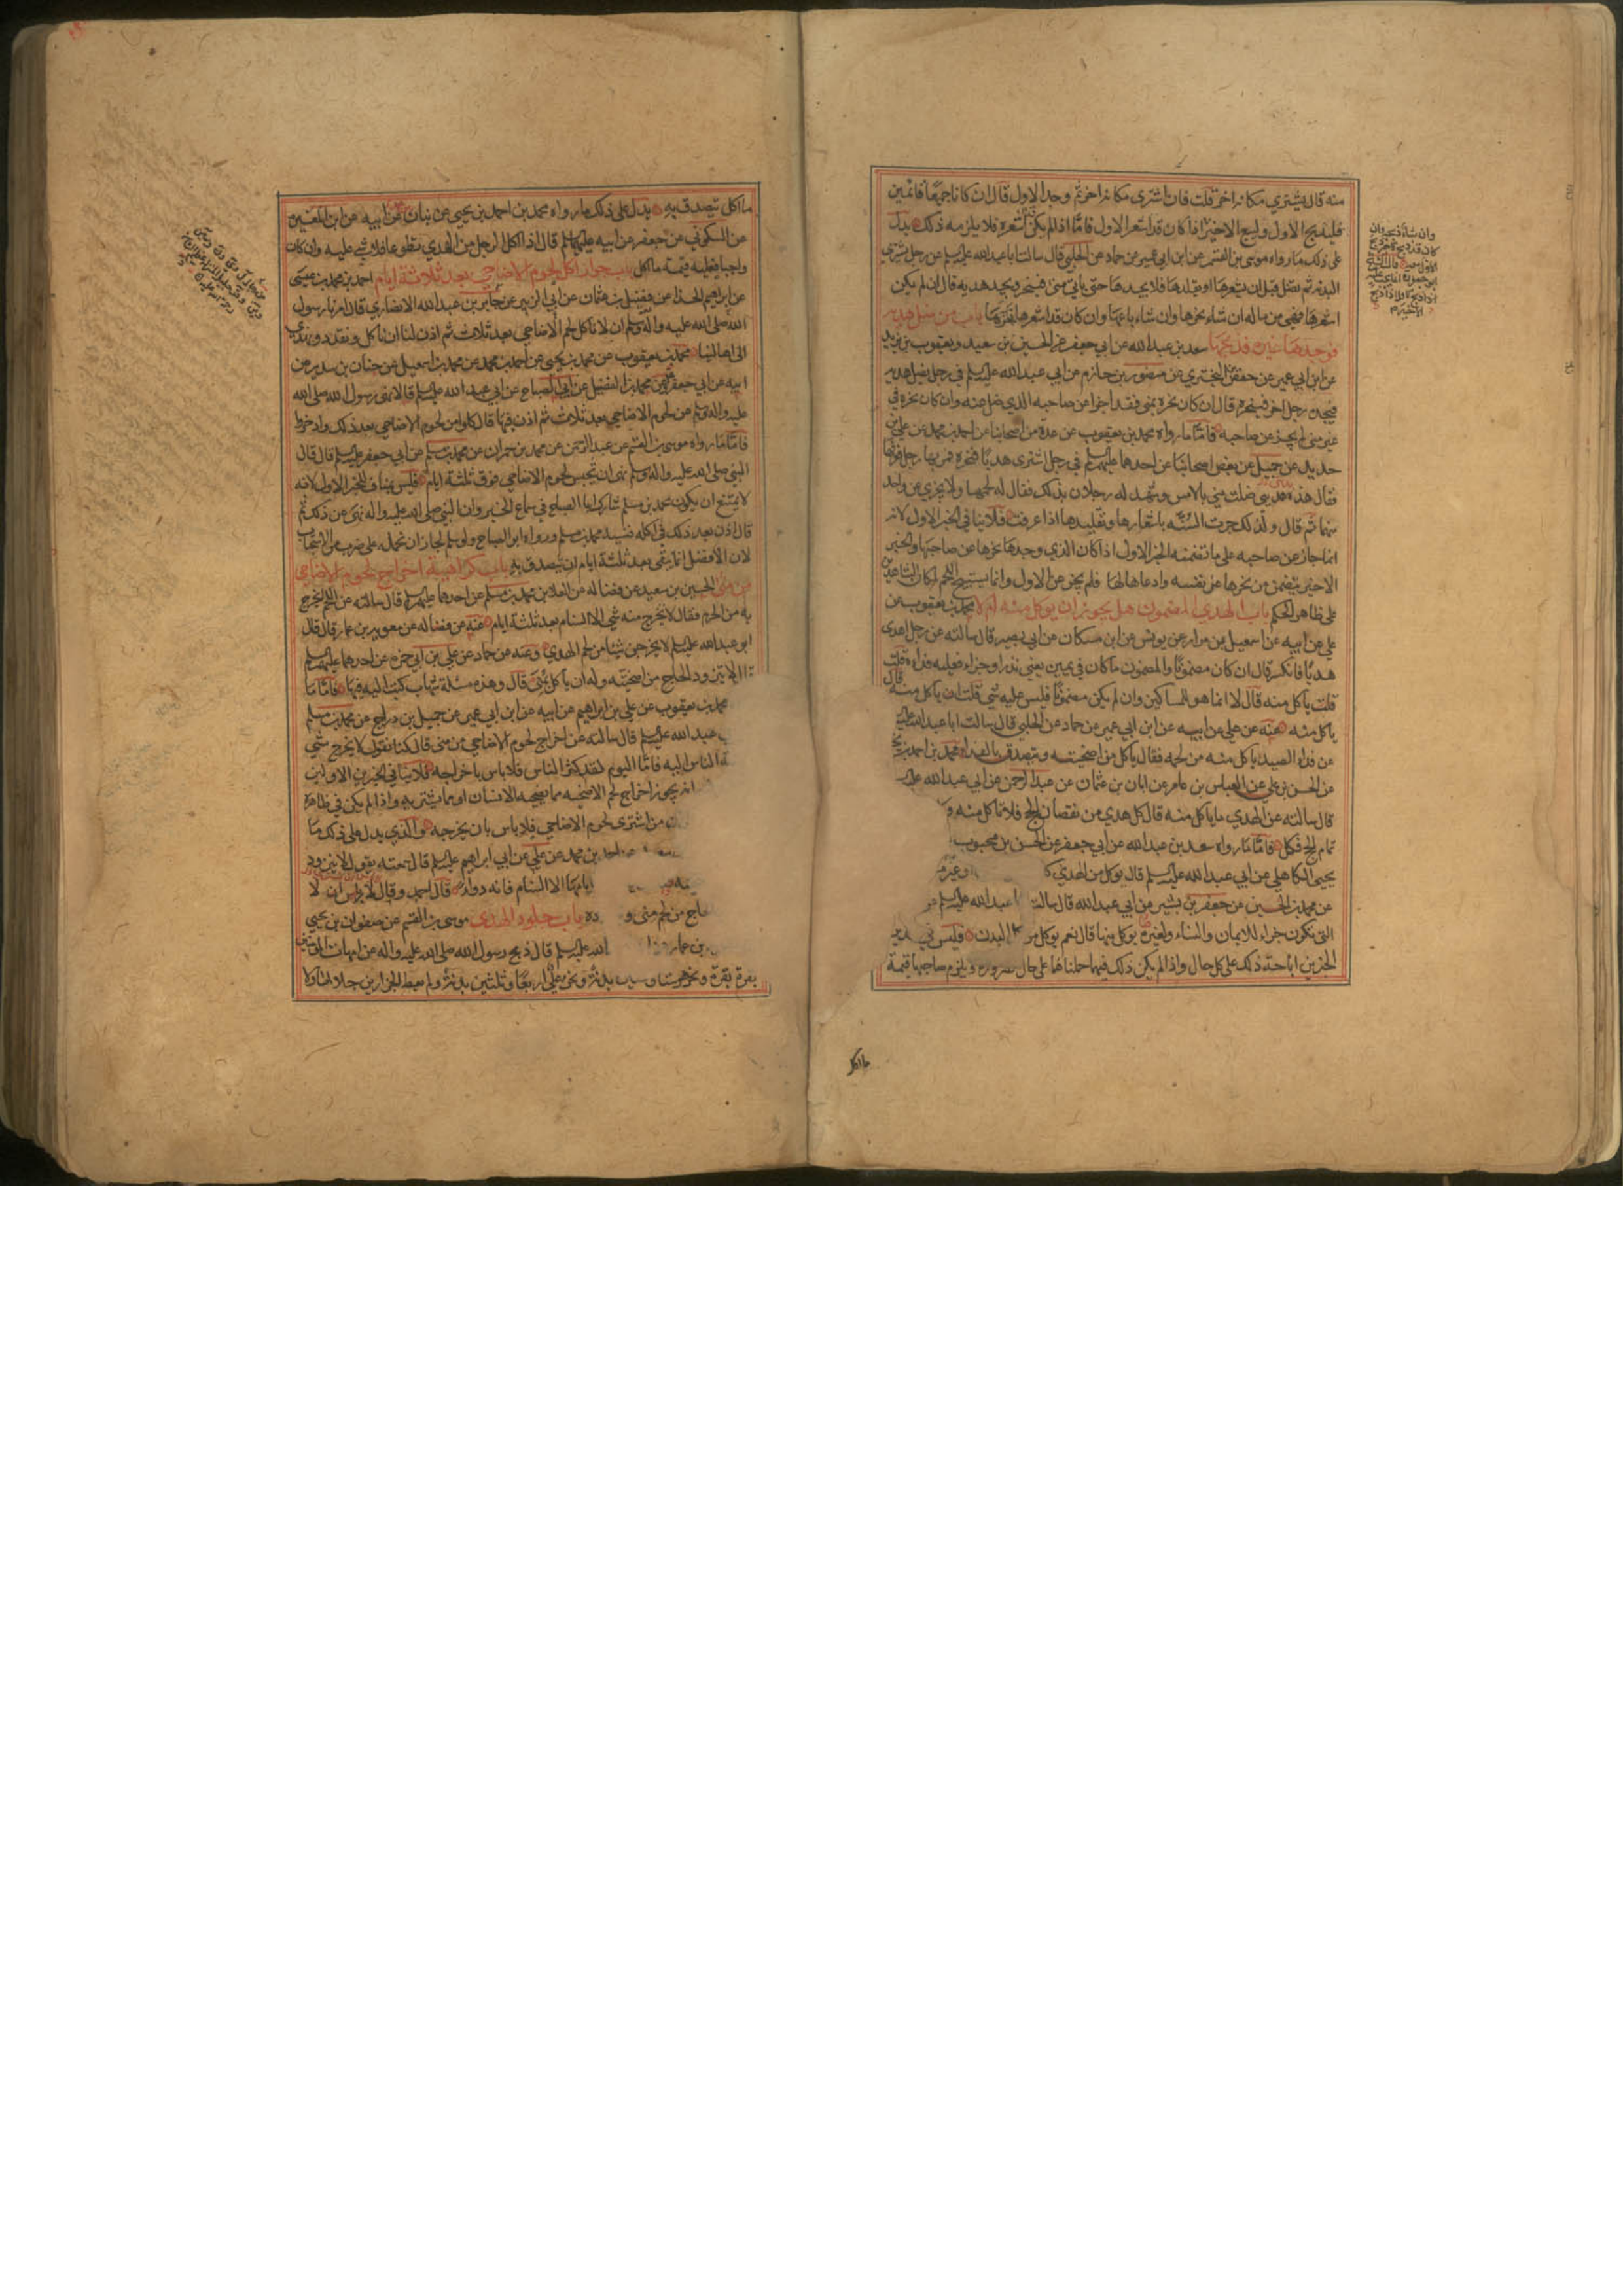 منه قال يشتري مكانها اخر قلت فان اشترى مكانها اخر ثم وجد الاول قال ان كانا جميعا قائمين
فليذبح الاول وليبع الاخير اذا كان قد اشعر الاول فاما اذا لم يكن اشعره فلا يلزمه ذلك يدل
على ذلك ما رواه موسى بن القسم عن ابن ابي عمير عن حماد عن الحلبي قال سالت ابا عبد الله عليه السلم عن رجل يشتري
البدنه ثم تضل قبل ان يشعرها او يقلدها فلا يجدها حتى ياتي منى فينحر ويجد هديه قال ان لم يكن
اشعرها فهي من ماله ان شاء نحرها وان شاء باعها وان كان قد اشعرها نحرها باب من ضل هديه
فوجدها غيره فذبحها سعد بن عبد الله عن ابي جعفر عن الحسين بن سعيد ويعقوب بن يزيد
عن ابن ابي عمير عن حفص بن البختري عن منصور بن حازم عن ابي عبد الله عليه السلم في رجل يضل هديه
فيجده رجل اخر فينحره قال ان كان نحره بمنى فقد اجزا عن صاحبه الذي ضل منه وان كان نحره في
غير منى لم يجز عن صاحبه فاما ما رواه محمد بن يعقوب عن عدة من اصحابنا عن احمد بن محمد عن علي بن
حديد عن جميل عن بعض اصحابنا عن احدهما عليهما السلم في رجل اشترى هديا فنحره فمر بها رجل فعرفها
فقال هذه بدنتي ضلت مني بالامس وشهد له رجلان بذلك فقال له لحمها ولا يجزي عن واحد
منهما ثم قال ولذلك جرت السنه باشعارها وتقليدها اذا عرفت فلا ينافي الخبر الاول لانه
انما جاز عن صاحبه على ما تضمنه الخبر الاول اذا كان الذي وجدها نحرها عن صاحبها والخبر
الاخير يتضمن من نحرها عن نفسه وادعاها لها فلم يجز عن الاول وانما يستبيح اللحم لمكان الشاهدين
على ظاهر الحكم باب الهدي المضمون هل يجوز ان يوكل منه ام لا محمد بن يعقوب عن
علي عن ابيه عن اسمعيل بن مرار عن يونس عن ابن مسكان عن ابي بصير قال سالته عن رجل اهدى
هديا فانكسر قال ان كان مضمونا والمضمون ما كان في يمين يعني نذرا وجزاء فعليه فداءه قلت
قلت ياكل منه قال لا انما هو للمساكين وان لم يكن مضمونا فليس عليه شي قلت ان ياكل منه قال
ياكل منه عنه عن علي عن ابيه عن ابن ابي عمير عن حماد عن الحلبي قال سالت ابا عبد الله عليه
عن فداء الصيد ياكل منه من لحمه فقال ياكل من اضحيته ويتصدق بالفداء محمد بن احمد بن يحيى
عن الحسن بن علي عن العباس بن عامر عن ابان بن عثمان عن عبد الرحمن عن ابي عبد الله عليه
قال سالته عن الهدي ما ياكل منه قال كل هدي من نقصان الحج فلا تاكل منه و
تمام الحج فكل فاما ما رواه سعد بن عبد الله عن ابي جعفر عن الحسن بن محبوب
يحيى الكاهلي عن ابي عبد الله عليه السلم قال يوكل من الهدي او غير
عن محمد بن الحسين عن جعفر بن بشير عن ابي عبد الله قال سالت عبد الله عليه السلم
التي تكون جزاء للايمان والنساء ولغيره يوكل منها قال نعم يوكل من البدن فليس
الخبرين اباحة ذلك على كل حال واذا لم يكن ذلك فيهما حملناهما على حال ضرورة ويلزم صاحبها قيمة
ما اكل
وان شاء ذبحه وان
كان قد ذبح
ما اكل تصدق به يدل على ذلك ما رواه محمد بن احمد بن يحيى عن بنان عن ابيه عن ابن المغيرة
عن السكوني عن جعفر عن ابيه عليهما السلم قال اذا اكل الرجل من الهدي تطوعا فلا شي عليه وان كان
واجبا فعليه قيمة ما اكل باب جواز اكل لحوم الاضاحي بعد ثلاثة ايام احمد بن محمد بن عيسى
عن ابراهيم الحذاء عن فضيل بن عثمان عن ابي الزبير عن جابر بن عبد الله الانصاري قال امرنا رسول
الله صلى الله عليه واله وسلم ان لا ناكل لحم الاضاحي بعد ثلاث ثم اذن لنا ان ناكل ونقدد ونهدي
الى اهالينا محمد بن يعقوب عن محمد بن يحيى عن احمد بن محمد عن محمد بن اسمعيل عن حنان بن سدير عن
ابيه عن ابي جعفر وعن محمد بن الفضيل عن ابي الصباح عن ابي عبد الله عليه السلم قالا نهى رسول الله صلى الله
عليه واله وسلم عن لحوم الاضاحي بعد ثلاث ثم اذن فيها قال كلوا من لحوم الاضاحي بعد ذلك وادخروا
فاما ما رواه موسى بن القسم عن عبد الرحمن عن محمد بن حمران عن محمد بن مسلم عن ابي جعفر عليه السلم قال قال
النبي صلى الله عليه واله وسلم نهى ان تحبس لحوم الاضاحي فوق ثلثة ايام فليس بمناف للخبر الاول لانه
لا يمتنع ان يكون محمد بن مسلم شارك ابا الصباح في سماع الخبر وان النبي صلى الله عليه واله نهى عن ذلك ثم
قال اذن بعد ذلك في اكله فنسيه محمد بن مسلم ورواه ابو الصباح ولو سلم لجاز ان نحمله على ضرب من الاستحباب
لان الافضل انما يبقى بعد ثلثة ايام ان يتصدق به باب كراهية اخراج لحوم الاضاحي
من منى الحسين بن سعيد عن فضاله عن العلا عن محمد بن مسلم عن احدهما عليهما السلم قال سالته عن اللحم ايخرج
به من الحرم فقال لا يخرج منه شي الا السنام بعد ثلثة ايام عنه عن فضاله عن معويه بن عمار قال قال
ابو عبد الله عليه السلم لا يخرجن شيئا من لحم الهدي وعنه عن حماد عن علي بن ابي حمزة عن احدهما عليهما السلم
قال لا يتزود الحاج من اضحيته وله ان ياكل بمنى قال وهذه مسئلة شهاب كتب اليه فيها فاما ما
محمد بن يعقوب عن علي بن ابراهيم عن ابيه عن ابن ابي عمير عن جميل بن دراج عن محمد بن مسلم
عبد الله عليه السلم قال سالته عن اخراج لحوم الاضاحي من منى قال كنا نقول لا يخرج شي
الناس اليه فاما اليوم لقد كثر الناس فلا باس باخراجه فلا ينافي الخبرين الاولين
انه يجوز اخراج لحم الاضحيه مما يضحيه الانسان او مما يشتريه واذا لم يكن في ظاهره
من اشترى لحوم الاضاحي فلا باس بان يخرجه والذي يدل على ذلك ما
احمد بن محمد عن علي عن ابي ابراهيم عليه السلم قال سمعته يقول لا يتزود
ايامها الا السنام فانه دواء قال احمد وقال لا باس ان لا
حاج من لحم منى و باب جلود الهدي موسى بن القسم عن صفوان بن يحيى
بن عمار الله عليه السلم قال ذبح رسول الله صلى الله عليه واله عن امهات المؤمنين
بقرة بقرة ونحر هو ستا وستين بدنة ونحر علي اربعا وثلثين بدنة ولم يعط الجزارين جلالها ولا